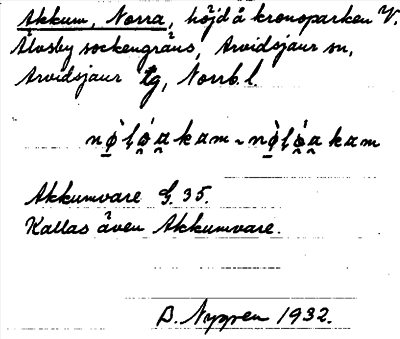 Akkum, Norra, höjd å kronoparken V.
Älvsby sockengräns, Arvidsjaur sn,
Arvidsjaur tg, Norrb. l.
Akkumvare G. 35.
Kallas även Akkumvare.
B. Nygren 1932.